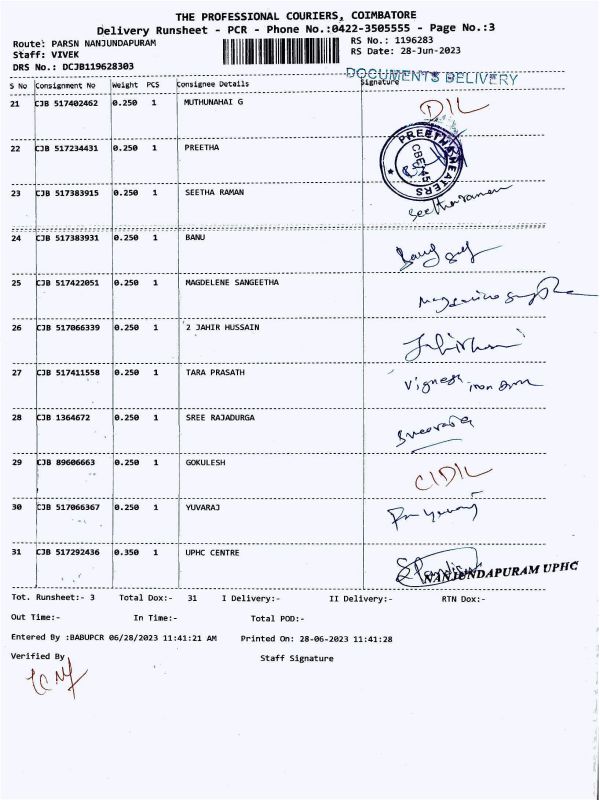 THE PROFESSIONAL COURIERS, COIMBATORE
Delivery Runsheet - PCR - Phone No.:0422-3505555 - Page No.:3
Route: PARSN NANJUNDAPURAM RS No.: 1196283
Staff: VIVEK RS Date: 28-Jun-2023
DRS No.: DCJB119628303
DOCUMENTS DELIVERY
S No Consignment No Weight PCS Consignee Details Signature
21 CJB 517402462 0.250 1 MUTHUNAHAI G
22 CJB 517234431 0.250 1 PREETHA PREETHA HEATERS CBE-45
23 CJB 517383915 0.250 1 SEETHA RAMAN Seetharaman
24 CJB 517383931 0.250 1 BANU
25 CJB 517422051 0.250 1 MAGDELENE SANGEETHA
26 CJB 517066339 0.250 1 2 JAHIR HUSSAIN
27 CJB 517411558 0.250 1 TARA PRASATH Vignesh
28 CJB 1364672 0.250 1 SREE RAJADURGA
29 CJB 89606663 0.250 1 GOKULESH
30 CJB 517066367 0.250 1 YUVARAJ
31 CJB 517292436 0.350 1 UPHC CENTRE NANJUNDAPURAM UPHC
Tot. Runsheet:- 3 Total Dox:- 31 I Delivery:- II Delivery:- RTN Dox:-
Out Time:- In Time:- Total POD:-
Entered By :BABUPCR 06/28/2023 11:41:21 AM Printed On: 28-06-2023 11:41:28
Verified By Staff Signature